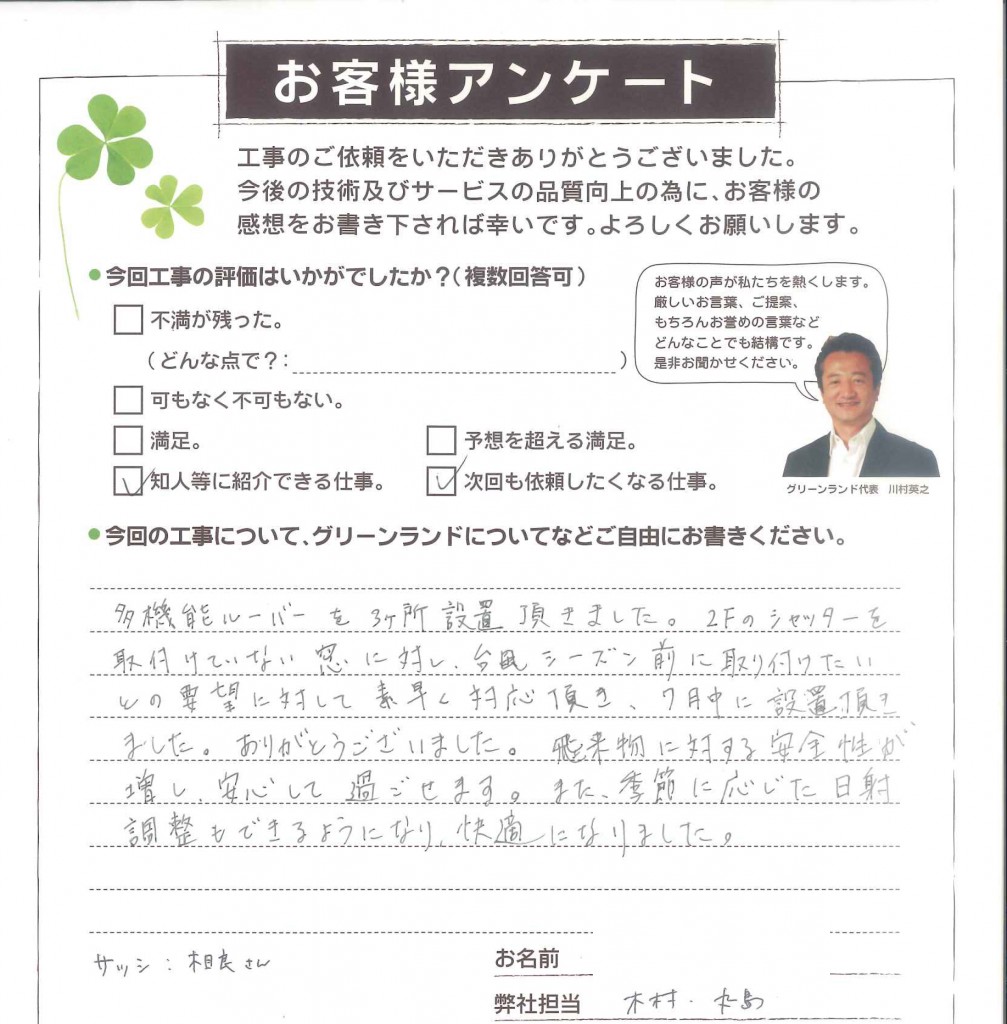 お客様アンケート
工事のご依頼をいただきありがとうございました。
今後の技術及びサービスの品質向上の為に、お客様の
感想をお書き下されば幸いです。よろしくお願いします。
●今回工事の評価はいかがでしたか？（複数回答可）
不満が残った。
（どんな点で？：　　　）
可もなく不可もない。
満足。
予想を超える満足。
知人等に紹介できる仕事。
次回も依頼したくなる仕事。
お客様の声が私たちを熱くします。
厳しいお言葉、ご提案、
もちろんお誉めの言葉など
どんなことでも結構です。
是非お聞かせください。
グリーンランド代表　川村英之
●今回の工事について、グリーンランドについてなどご自由にお書きください。
多機能ルーバーを3ヶ所設置頂きました。2Fのシャッターを
取付けていない窓に対し、台風シーズン前に取り付けたい
との要望に対して素早く対応頂き、7月中に設置頂き
ました。ありがとうございました。飛来物に対する安全性が
増し、安心して過ごせます。また、季節に応じた日射
調整もできるようになり、快適になりました。
サッシ：相良さん
お名前
弊社担当　木村・丸島